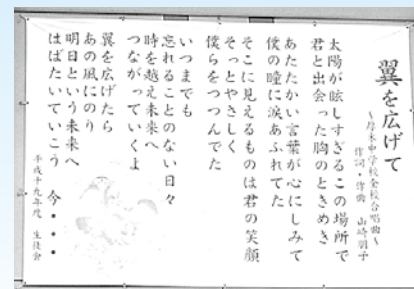 翼を広げて
～厚木中学校全校合唱曲～
作詞・作曲 山崎朋子
太陽が眩しすぎるこの場所で
君と出会った胸のときめき
あたたかい言葉が心にしみて
僕の瞳に涙あふれてた
そこに見えるものは君の笑顔
そっとやさしく
僕らをつつんでた
いつまでも
忘れることのない日々
時を越え未来へ
つながっていくよ
翼を広げたら
あの風にのり
明日という未来へ
はばたいていこう 今・・・
平成十九年度 生徒会